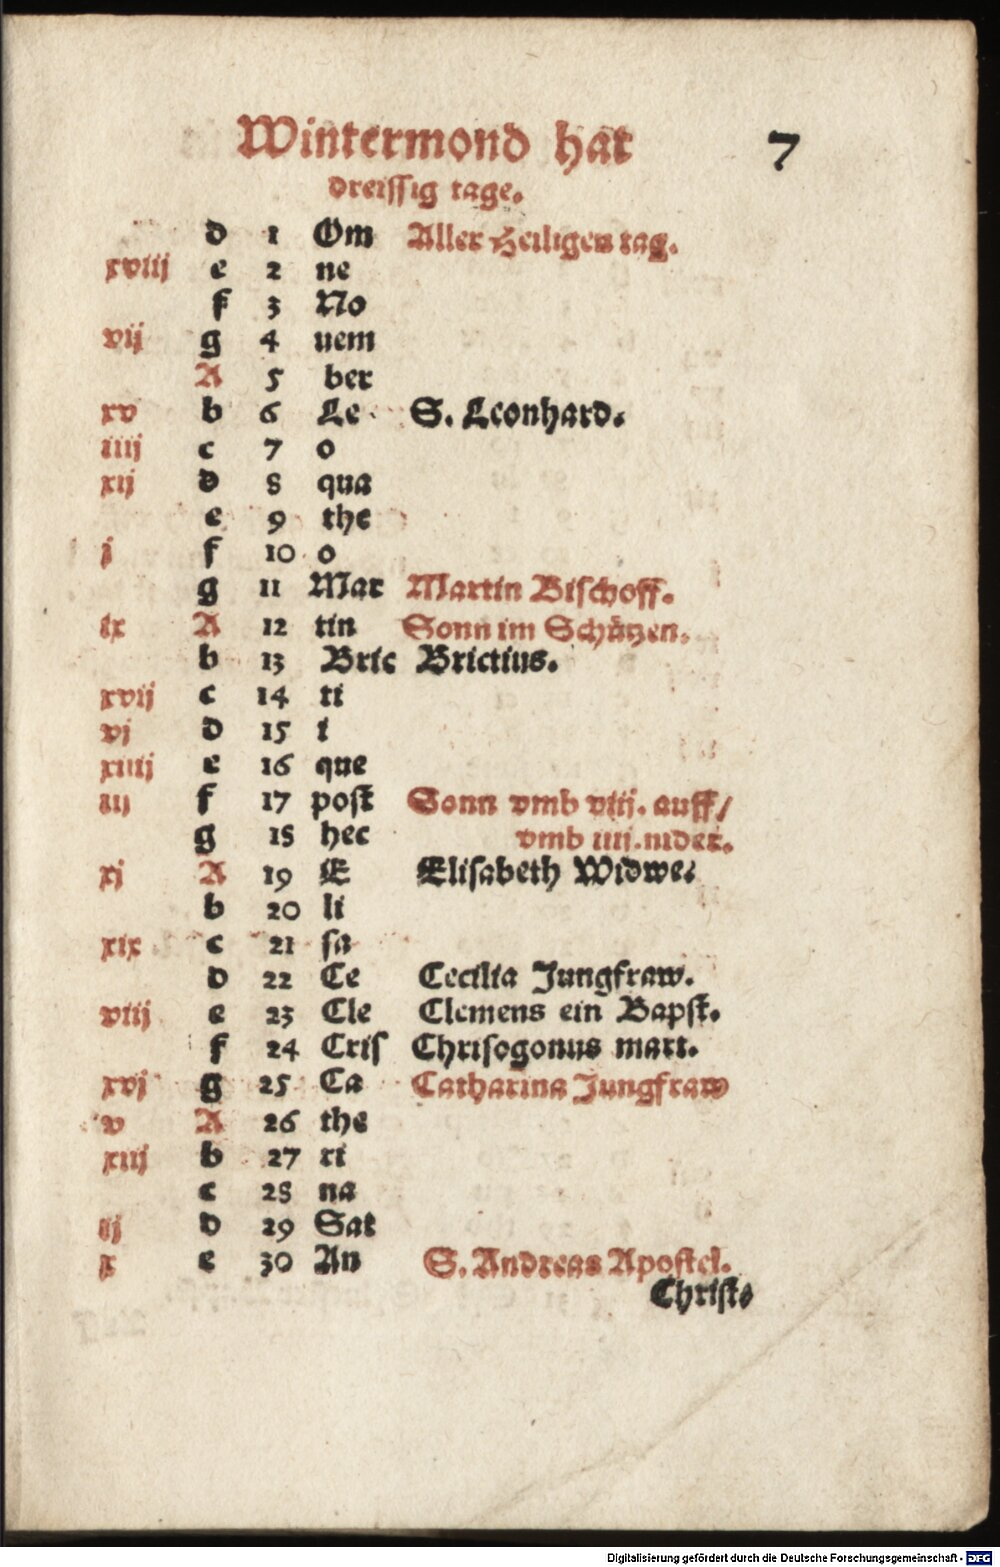 Wintermond hat
7
dreissig tage.
d 1 Om Aller Heiligen tag.
xviij e 2 ne
f 3 No
vij g 4 uem
A 5 ber
xv b 6 Le S. Leonhard.
iiij c 7 o
xij d 8 qua
e 9 the
j f 10 o
g 11 Mar Martin Bischoff.
ix A 12 tin Sonn im Schützen.
b 13 Bric Brictius.
xvij c 14 ti
vj d 15 i
xiiij e 16 que
iij f 17 post Sonn vmb viij. auff/
g 18 hec vmb iiij. nider.
xj A 19 E Elisabeth Widwe.
b 20 li
xix c 21 sa
d 22 Ce Cecilia Jungfraw.
viij e 23 Cle Clemens ein Bapst.
f 24 Cris Chrisogonus mart.
xvj g 25 Ca Catharina Jungfraw
v A 26 the
xiij b 27 ri
c 28 na
ij d 29 Sat
x e 30 An S. Andreas Apostel.
Christ⸗
Digitalisierung gefördert durch die Deutsche Forschungsgemeinschaft - DFG